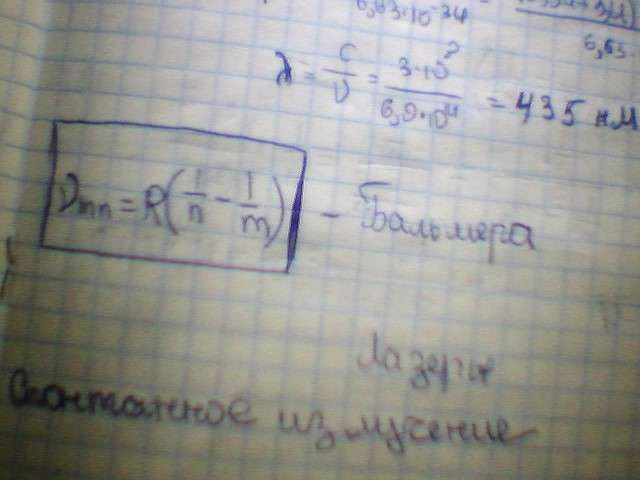 6,63·10⁻³⁴
6,63·
λ = c/ν = 3·10⁸/6,9·10¹⁴ = 435 нм
νmn = R(1/n - 1/m) - Бальмера
Лазеры
Спонтанное излучение